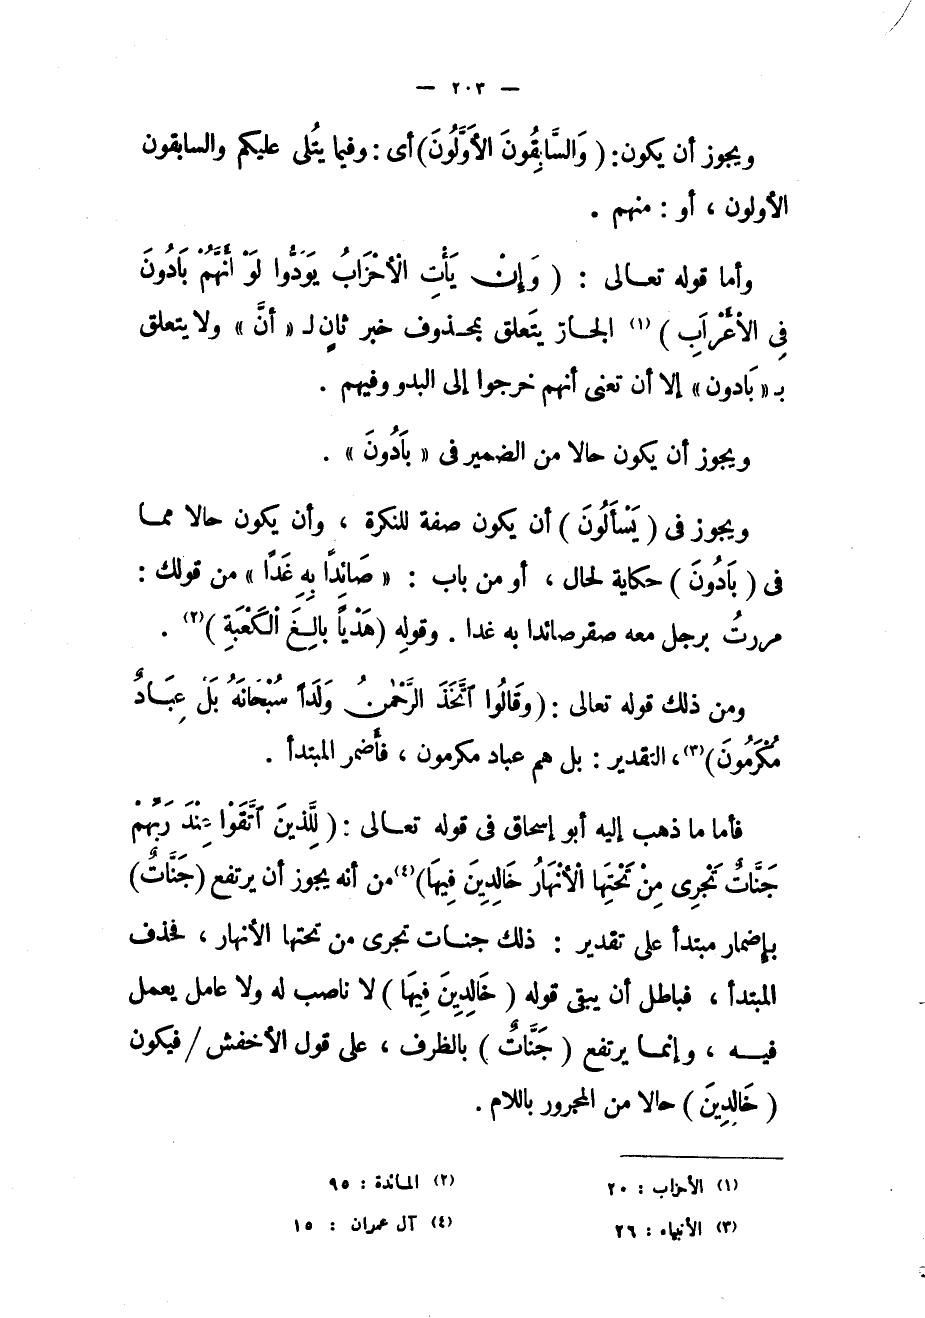 — ٢٠٣ —
ويجوز أن يكون: ( وَالسَّابِقُونَ الأَوَّلُونَ) أى : وفيما يُتلى عليكم والسابقون
الأولون ، أو : منهم .
وأما قوله تعـالى : ( وَإِنْ يَأْتِ الْأَحْزَابُ يَوَدُّوا لَوْ أَنَّهُمْ بَادُونَ
فِى الْأَعْرَابِ ) (١) الجـار يتعلق بمحـذوف خبر ثانٍ لـ « أنَّ » ولا يتعلق
بـ « بَادون » إلا أن تعنى أنهم خرجوا إلى البدو وفيهم .
ويجوز أن يكون حالا من الضمير فى « بَادُونَ » .
ويجوز فى ( يَسْأَلُونَ ) أن يكون صفة للنكرة ، وأن يكون حالا ممـا
فى ( بَادُونَ ) حكاية لحال ، أو من باب : « صَائِدًا بِهِ غَدًا » من قولك :
مررتُ برجل معه صقر صائدا به غدا . وقوله (هَدْياً بالِغَ الْكَعْبَةِ )(٢) .
ومن ذلك قوله تعالى : ( وَقَالُوا اتَّخَذَ الرَّحْمٰنُ وَلَدًا سُبْحَانَهُ بَلْ عِبَـادٌ
مُكْرَمُونَ)(٣)، التقدير : بل هم عباد مكرمون ، فأضمر المبتدأ .
فأما ما ذهب إليه أبو إسحاق فى قوله تعـالى : ( لِلَّذِينَ اتَّقَوْا عِنْدَ رَبِّهِمْ
جَنَّاتٌ تَجْرِى مِنْ تَحْتِهَا الْأَنْهَارُ خَالِدِينَ فِيهَا)(٤) من أنه يجوز أن يرتفع (جَنَّاتٌ)
بإضمار مبتدأ على تقدير : ذلك جنـات تجرى من تحتها الأنهار ، فحذف
المبتدأ ، فباطل أن يبقى قوله ( خَالِدِينَ فِيهَا ) لا ناصب له ولا عامل يعمل
فيـه ، وإنمـا يرتفع ( جَنَّاتٌ ) بالظرف ، على قول الأخفش / فيكون
( خَالِدِينَ ) حالا من المجرور باللام .
(١) الأحزاب : ٢٠ (٢) المـائدة : ٩٥
(٣) الأنبياء : ٢٦ (٤) آل عمران : ١٥